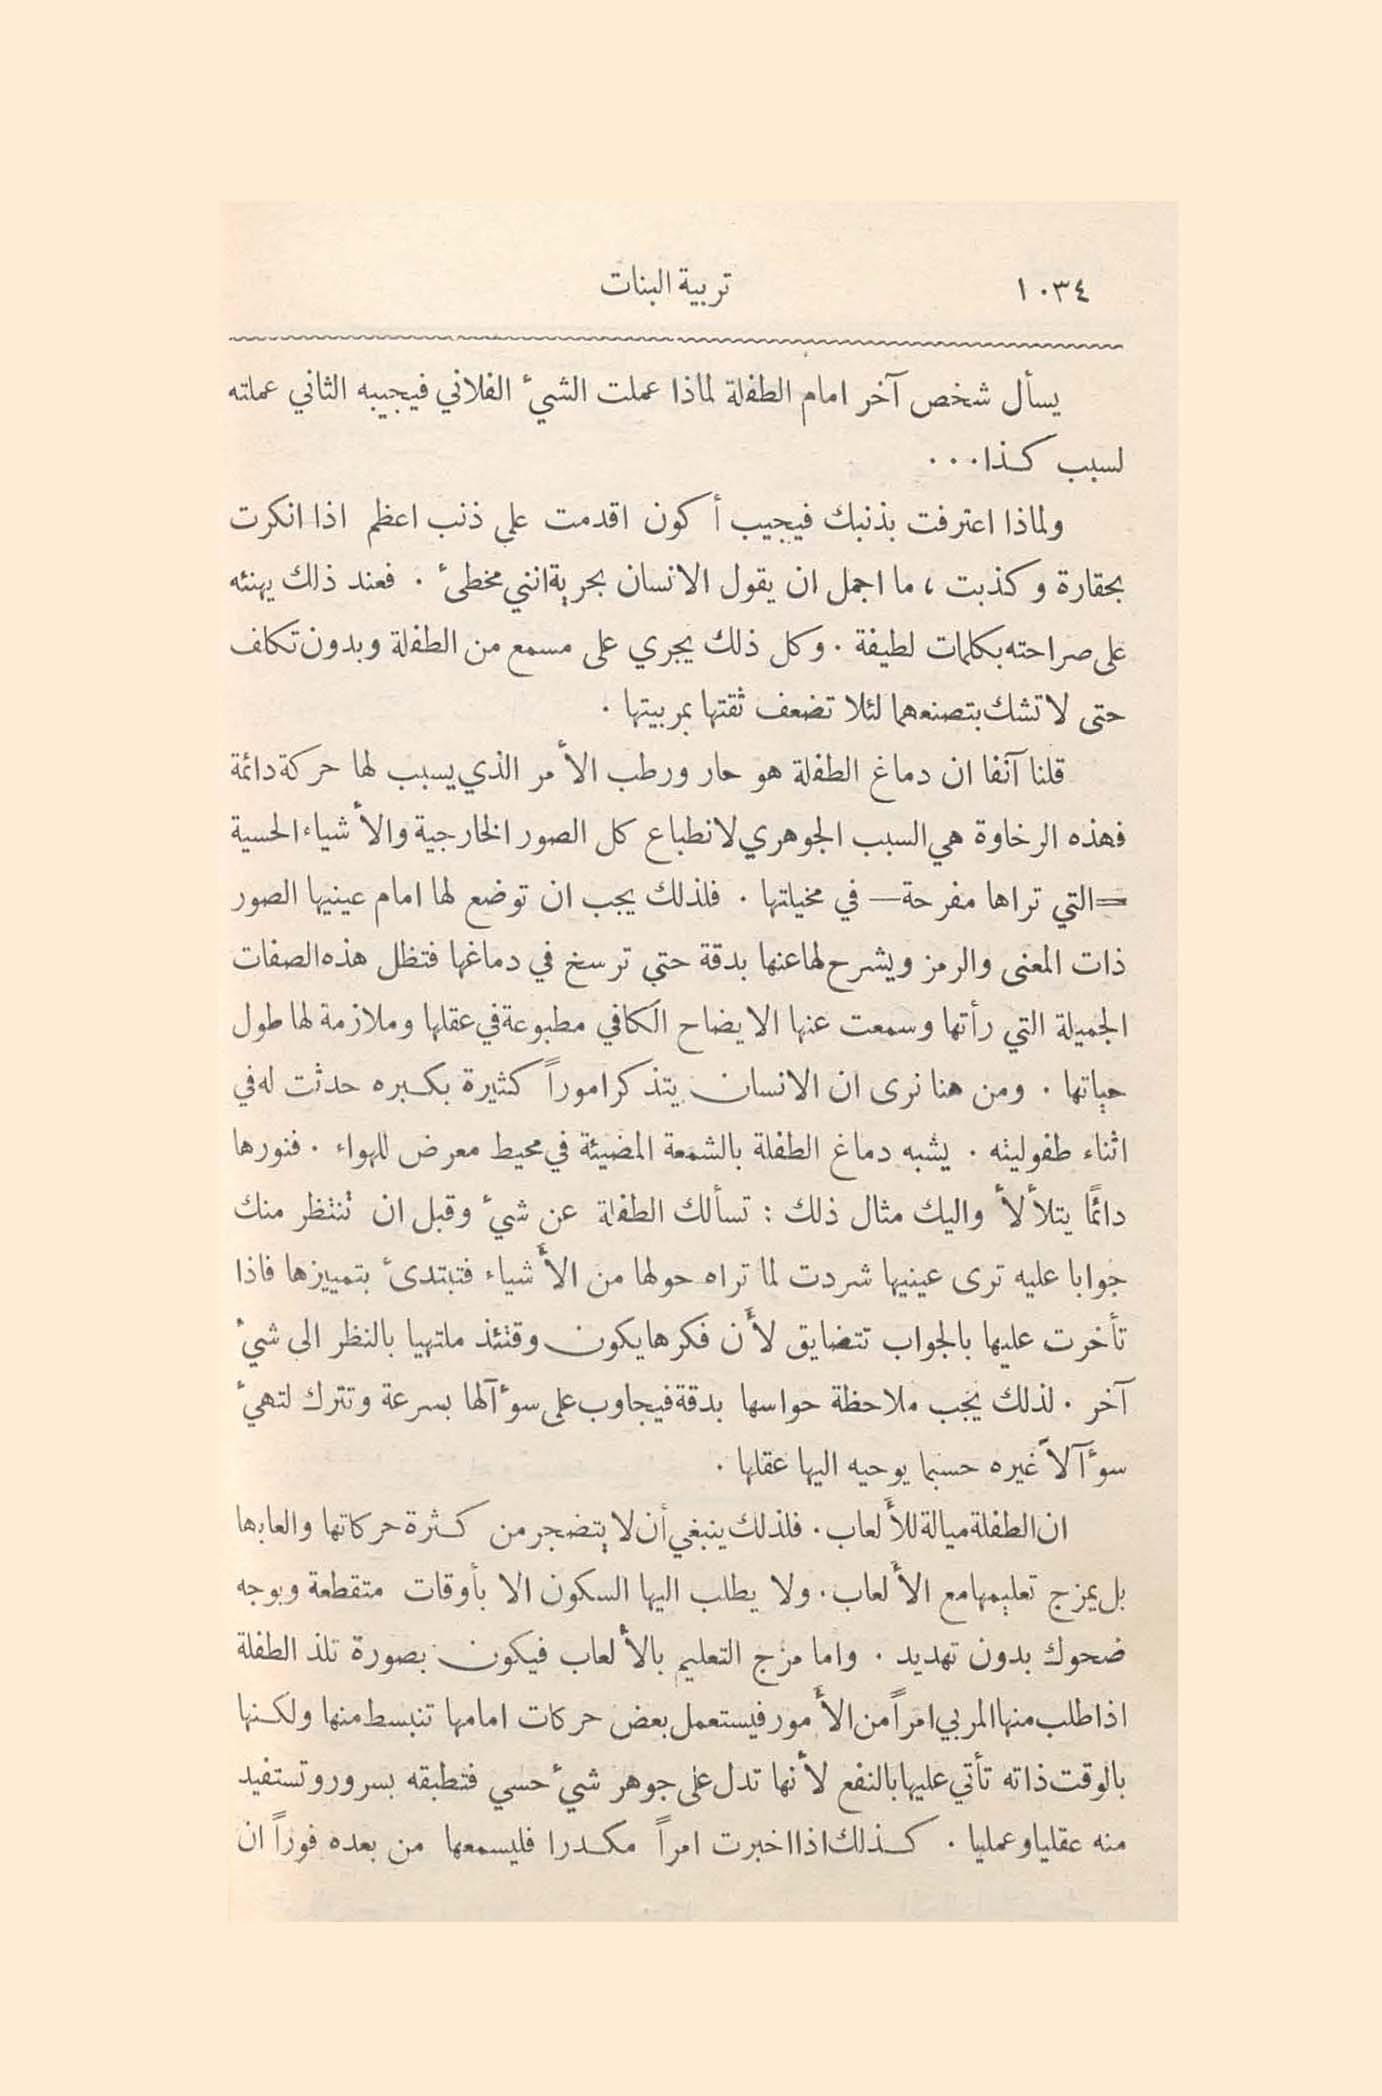 ١٠٣٤ تربية البنات
يسأل شخص آخر امام الطفلة لماذا عملت الشيءَ الفلاني فيجيبه الثاني عملته
لسبب كذا...
ولماذا اعترفت بذنبك فيجيب أكون اقدمت على ذنب اعظم اذا انكرت
بحقارة وكذبت ، ما اجمل ان يقول الانسان بحرية انني مخطئ . فعند ذلك يهنئه
على صراحته بكلمات لطيفة . وكل ذلك يجري على مسمع من الطفلة وبدون تكلف
حتى لا تشك بتصنعهما لئلا تضعف ثقتها بمربيتها .
قلنا آنفا ان دماغ الطفلة هو حار ورطب الأمر الذي يسبب لها حركة دائمة
فهذه الرخاوة هي السبب الجوهري لانطباع كل الصور الخارجية والأشياء الحسية
=التي تراها مفرحة— في مخيلتها . فلذلك يجب ان توضع لها امام عينيها الصور
ذات المعنى والرمز ويشرح لها عنها بدقة حتى ترسخ في دماغها فتظل هذه الصفات
الجميلة التي رأتها وسمعت عنها الايضاح الكافي مطبوعة في عقلها وملازمة لها طول
حياتها . ومن هنا نرى ان الانسان يتذكر اموراً كثيرة بكبره حدثت له في
اثناء طفوليته . يشبه دماغ الطفلة بالشمعة المضيئة في محيط معرض للهواء . فنورها
دائمًا يتلألأ واليك مثال ذلك : تسألك الطفلة عن شيءٍ وقبل ان تنتظر منك
جوابا عليه ترى عينيها شردت لما تراه حولها من الأشياء فتبتدئ بتمييزها فاذا
تأخرت عليها بالجواب تتضايق لأن فكرها يكون وقتئذ ملتهيا بالنظر الى شيءٍ
آخر . لذلك يجب ملاحظة حواسها بدقة فيجاوب على سوءآلها بسرعة وتترك لتهيءَ
سوءآلاً غيره حسبما يوحيه اليها عقلها .
ان الطفلة ميالة للألعاب . فلذلك ينبغي أن لا يتضجر من كثرة حركاتها والعابها
بل يمزج تعليمها مع الألعاب . ولا يطلب اليها السكون الا بأوقات متقطعة وبوجه
ضحوك بدون تهديد . واما مزج التعليم بالألعاب فيكون بصورة تلذ الطفلة
اذا طلب منها المربي امراً من الأمور فيستعمل بعض حركات امامها تنبسط منها ولكنها
بالوقت ذاته تأتي عليها بالنفع لأنها تدل على جوهر شيءٍ حسي فتطبقه بسرور وتستفيد
منه عقليا وعمليا . كذلك اذا اخبرت امراً مكدرا فليسمعها من بعده فوراً ان